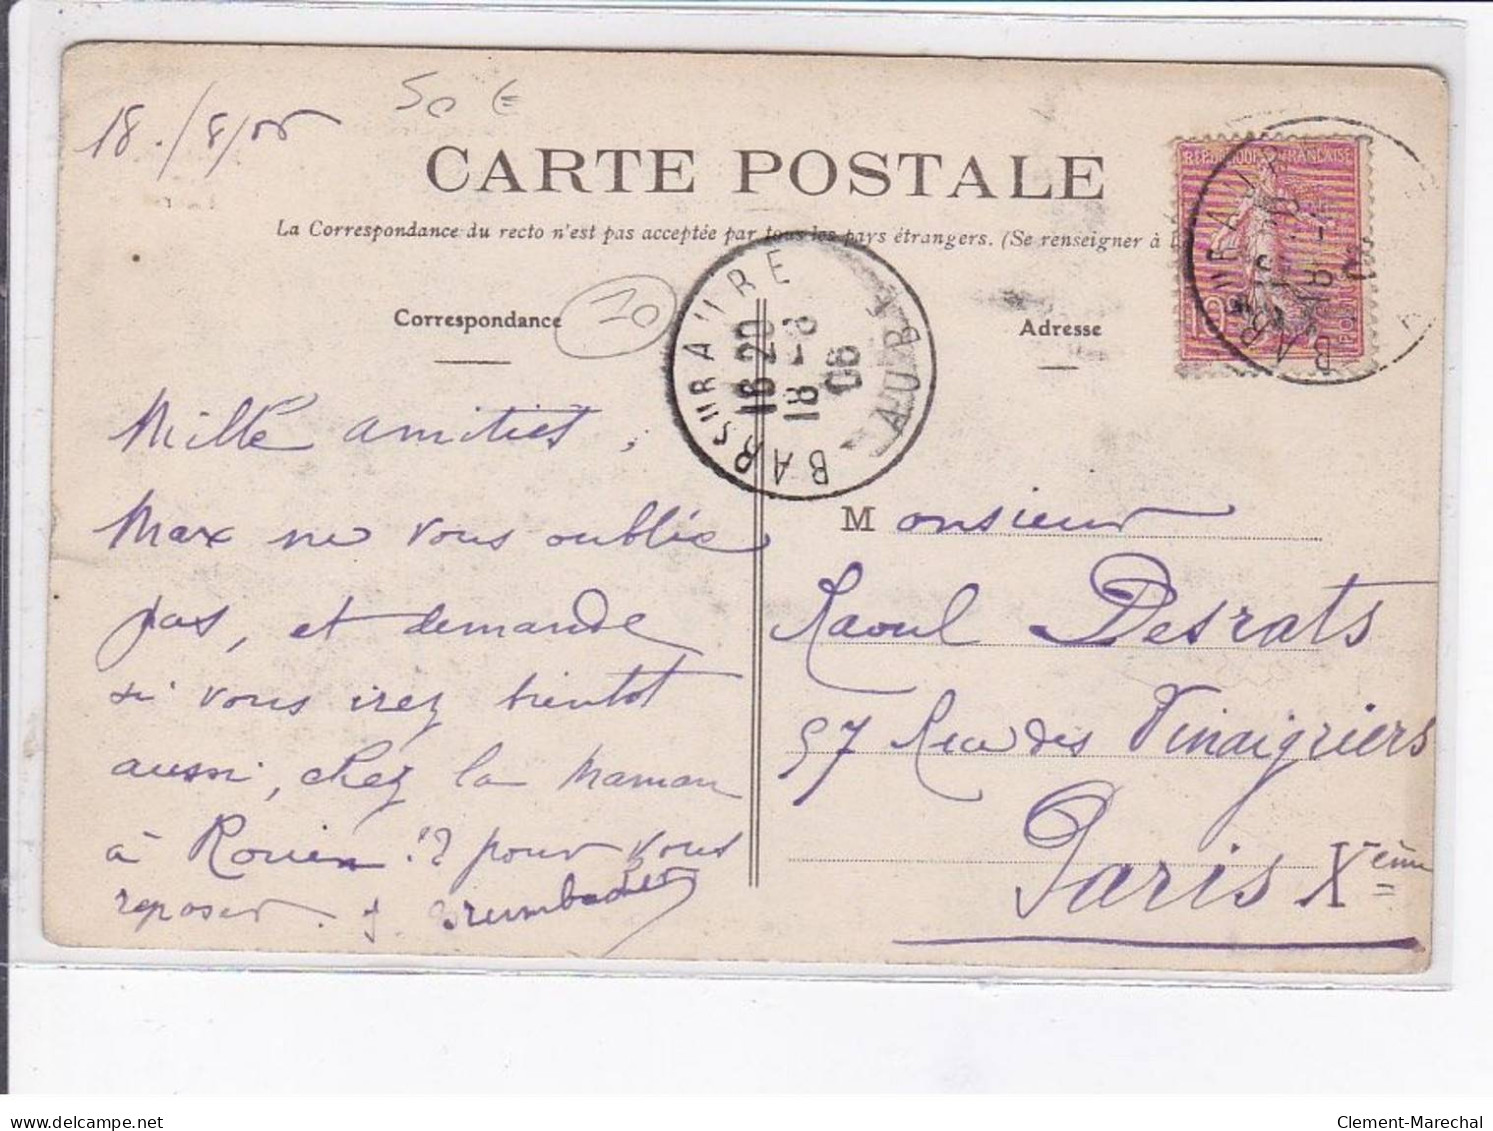 18./8/06
50 €
CARTE POSTALE
La Correspondance du recto n'est pas acceptée par tous les pays étrangers. (Se renseigner à
RÉPUBLIQUE FRANÇAISE
BAR S'UR AUBE
Correspondance
10
BAR S'UR AUBE
AUBE
16 20
18 -8
06
Adresse
Mille amitiés,
Max ne vous oublie
pas, et demande
si vous irez bientot
aussi, chez la Maman
à Rouen !? pour vous
reposer.
Monsieur
Raoul Desrats
57 Rue des Vinaigriers
Paris Xème
delcampe.net
Clement-Marechal